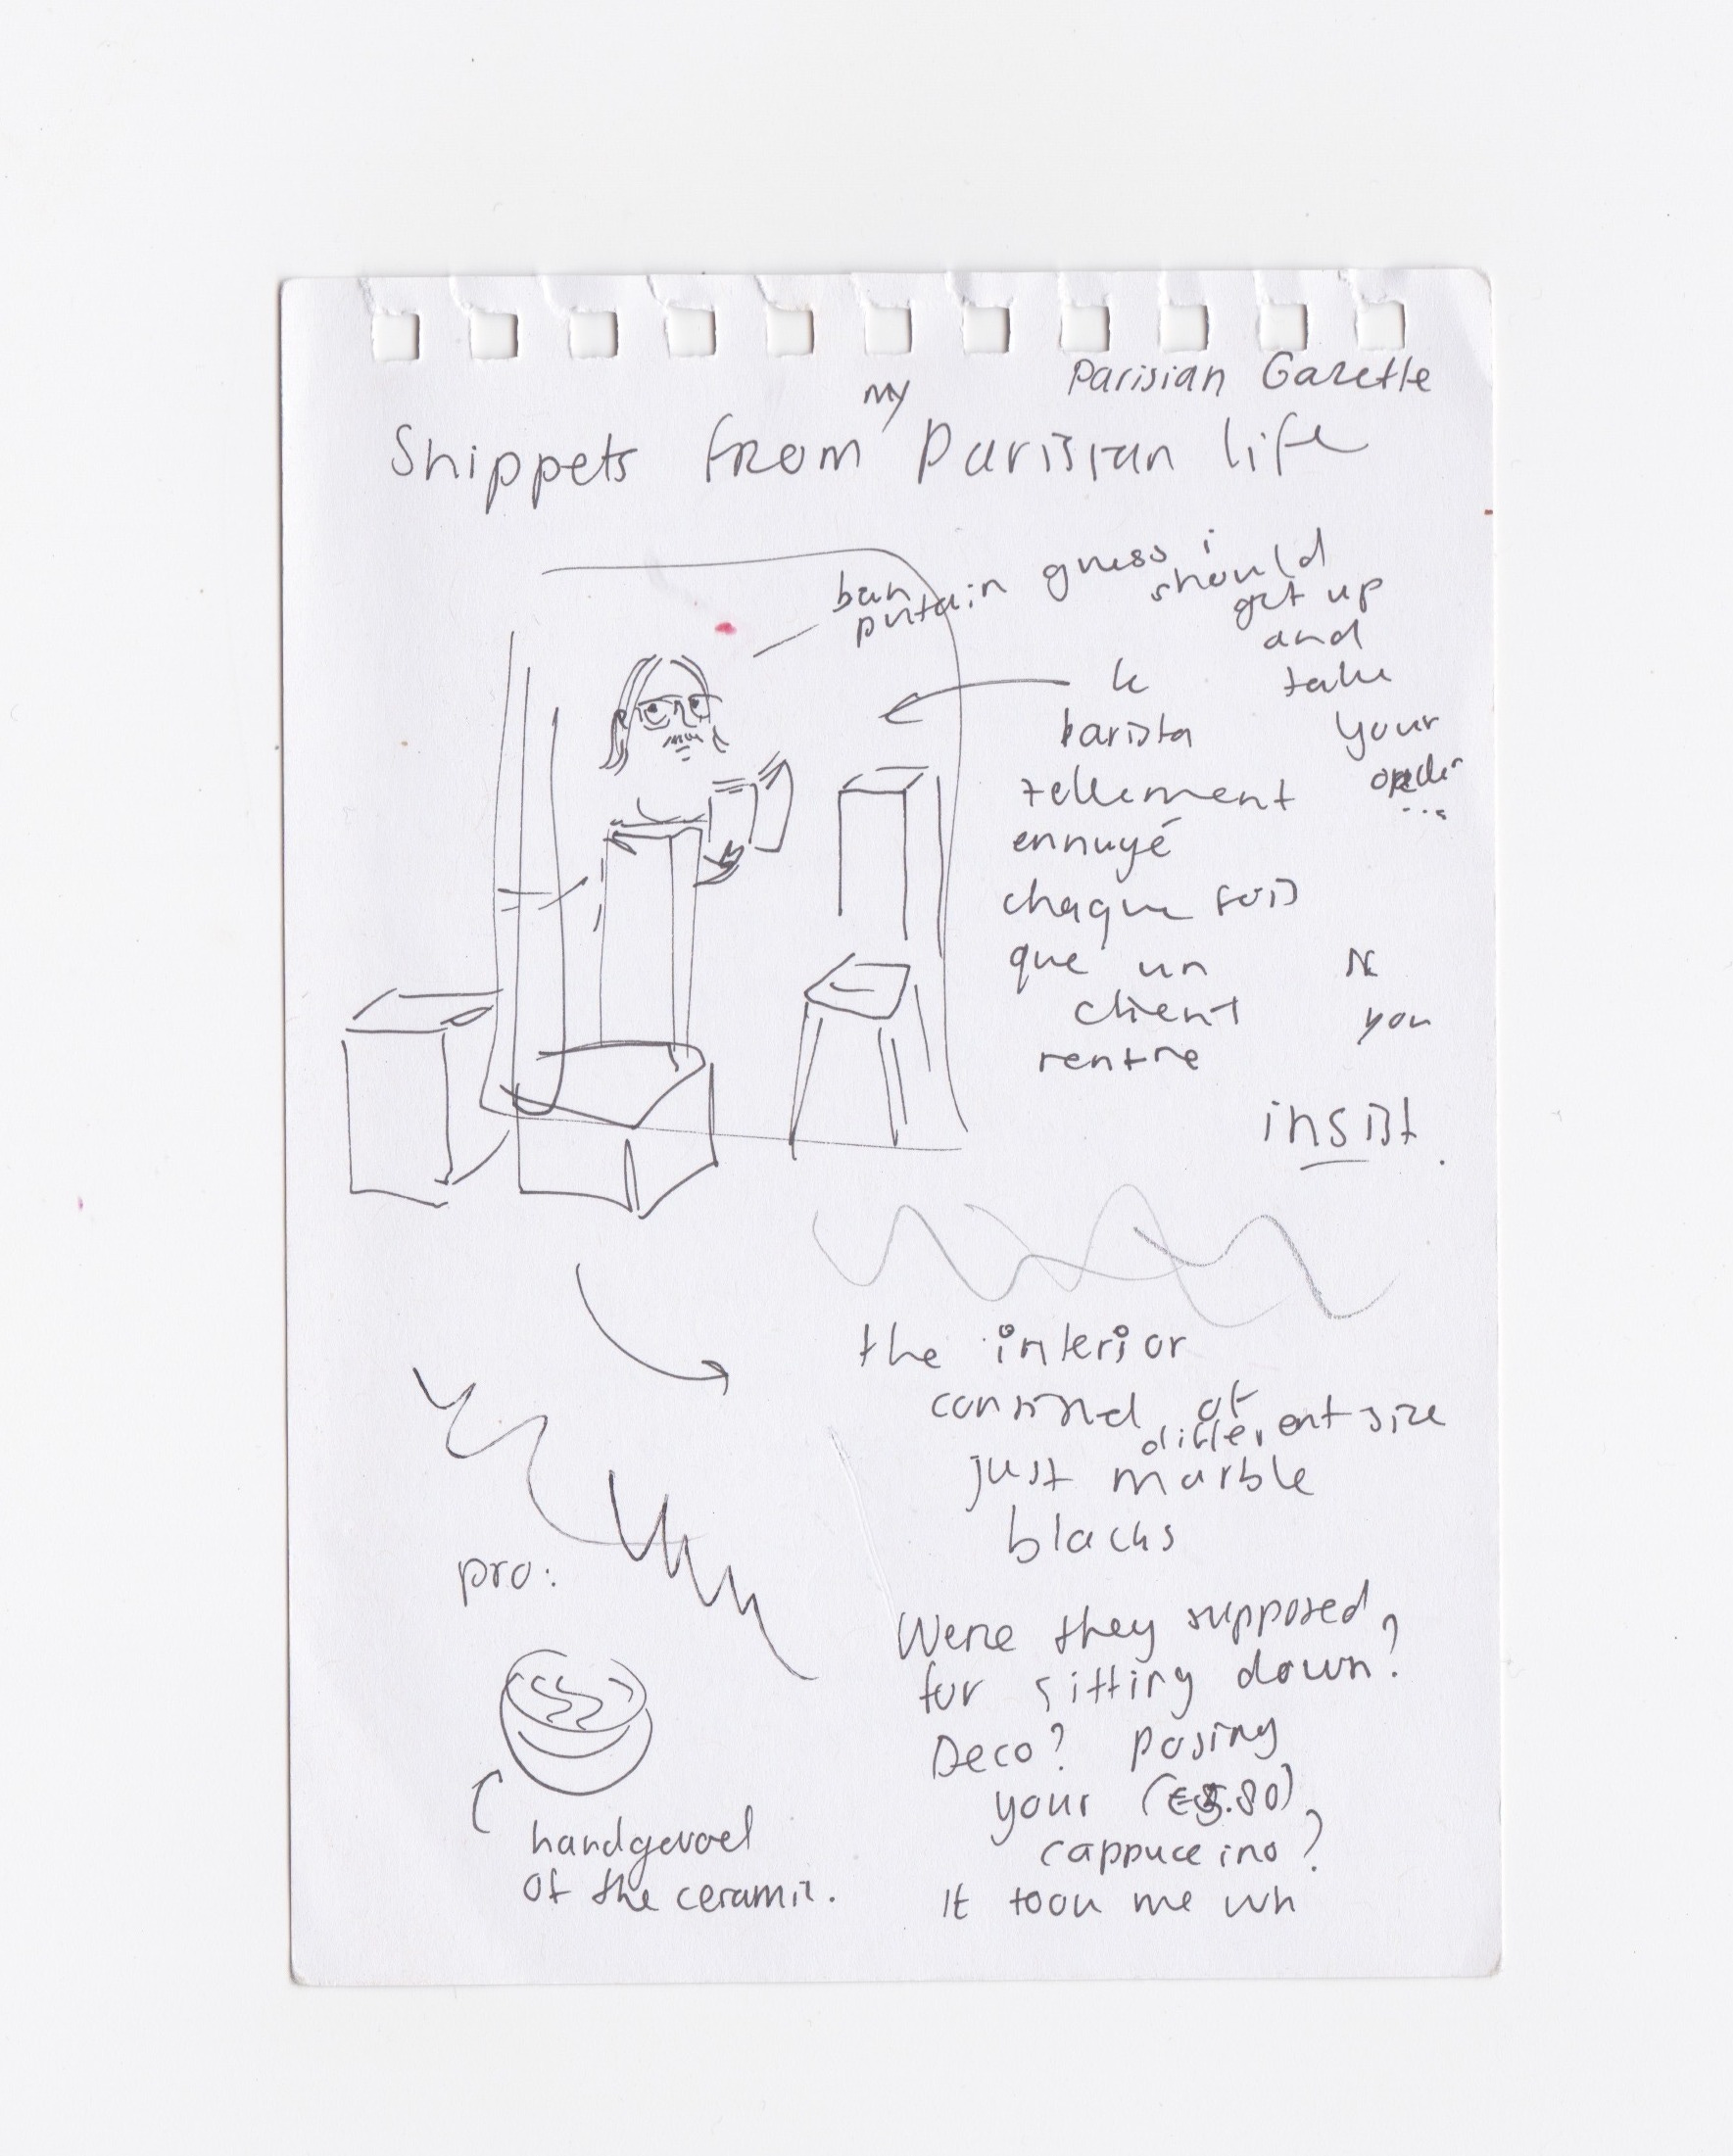 Parisian Gazette
my
Snippets from Parisian life
ban
putain guess i
should
get up
and
take
your
order
...
if
you
insist.
le
barista
tellement
ennuyé
chaque fois
que un
client
rentre
the interior
consisted of
different size
just marble
blocks
Were they supposed
for sitting down?
Deco? Posing
your (€5.80)
cappuccino?
It took me wh
pro:
handgevoel
of the ceramic.